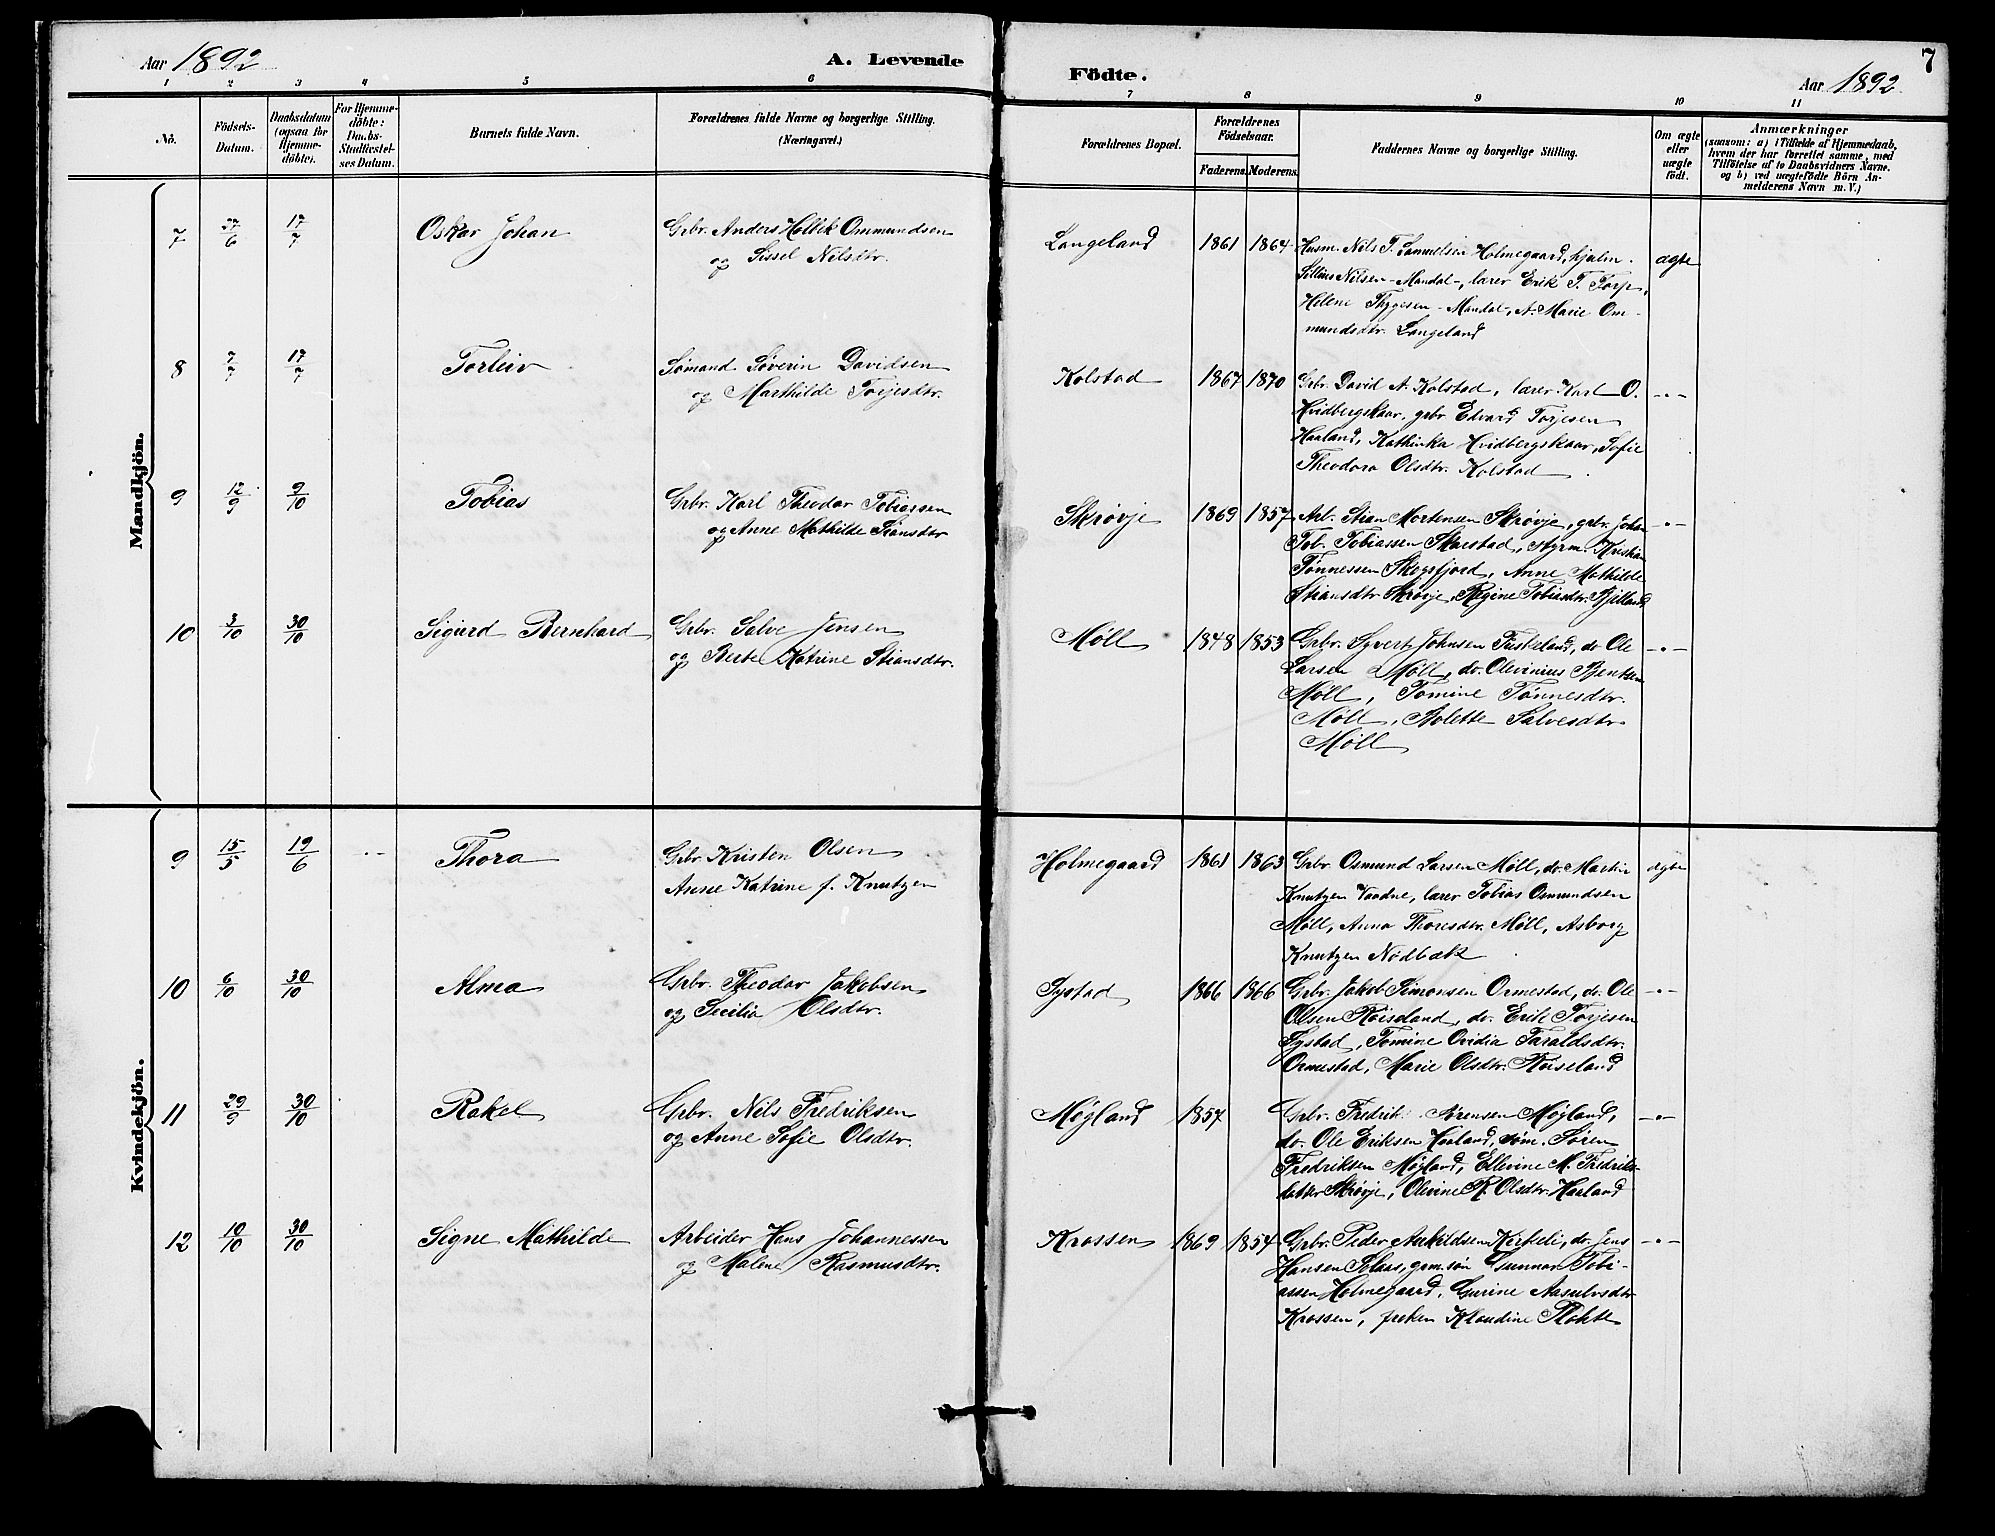 Aar 1892
A. Levende
Födte.
Aar 1892
7
1 2 3 4 5 6 7 8 9 10 11
No.
Födsels-
Datum.
Daabsdatum
(ogsaa for
Hjemme-
döbte).
For Hjemme-
döbte:
Daabs-
Stadfæstel-
ses Datum.
Barnets fulde Navn.
Forældrenes fulde Navne og borgerlige Stilling.
(Næringsvei.)
Forældrenes Bopæl.
Forældrenes
Födselsaar.
Faderens. Moderens.
Faddernes Navne og borgerlige Stilling.
Om ægte
eller
uægte
födt.
Anmærkninger
(saasom: a) i Tilfælde af Hjemmedaab,
hvem der har forrettet samme, med
Tilföielse af to Daabsvidners Navne.
og b) ved uægtefödte Börn An-
melderens Navn m. V.)
Mandkjön.
7 27/6 17/7 Oskar Johan
Grbr. Anders Holbek Ommundsen
og Sissel Nilsdtr.
Langeland 1861 1864
Husm. Nils T. Samuelsen Holmegaard, hjulm.
Sillius Nilsen - Mandal -, lærer Erik T. Torp,
Helene Thygesen - Mandal -, A. Marie Om-
mundsdtr. Langeland
ægte
8 7/7 17/7 Torleiv
Sømand Søverin Davidsen
og Marthilde Torjesdtr.
Kolstad 1867 1870
Grbr. David A. Kolstad, lærer Karl O.
Hvidbergskaar, grbr Edvard Torjesen
Haaland, Kathinka Hvidbergskaar, Sofie
Theodora Olsdtr. Kolstad
-"-
9 12/9 9/10 Tobias
Grbr. Karl Theodor Tobiassen
og Anne Mathilde Stiansdtr
Skrøvje 1869 1857
Arb. Stian Mortensen Skrøvje, grbr. Johan
Tob. Tobiassen Skarstad, styrm. Kristian
Tønnessen Skogsfjord, Anne Mathilde
Stiansdtr Skrøvje, Regine Tobiasdtr. Bjelland
-"-
10 3/10 30/10 Sigurd Bernhard
Grbr. Salve Jensen
og Berte Katrine Stiansdtr.
Møll 1848 1853
Grbr. Syvert Johnsen Fuskeland, do Ole
Larsen Møll, do. Olevinius Bentsen
Møll, Tomine Tønnesdtr.
Møll, Bolette Salvesdtr.
Møll
-"-
Kvindekjön.
9 15/5 19/6 -- Thora
Grbr. Kristen Olsen
Anne Katrine f. Knutzen
Holmegaard 1861 1863
Grbr Osmund Larsen Møll, do. Martin
Knutzen Vaadne, lærer Tobias Osmundsen
Møll, Anna Thoresdtr. Møll, Asborg
Knutzen Nødbæk
ægte
10 6/10 30/10 Alma
Grbr. Theodor Jakobsen
og Secilia Olsdtr.
Systad 1866 1866
Grbr. Jakob Simonsen Ormestad, do. Ole
Olsen Røiseland, do. Erik Torjesen
Systad, Tomine Ovidia Taraldsdtr.
Ormestad, Marie Olsdtr. Røiseland
-"-
11 29/9 30/10 Rakel
Grbr. Nils Fredriksen
og Anne Sofie Olsdtr.
Møgland 1857
Grbr. Fredrik Sørensen Møgland,
do. Ole Eriksen Haaland, søm. Søren
Fredriksen Møgland, Ellevine M. Fredriks-
datter Skrøvje, Olevine K. Olsdtr. Haaland
-"-
12 10/10 30/10 Signe Mathilde
Arbeider Hans Johannessen
og Malene Rasmusdtr.
Krossen 1869 1854
Grbr. Peder Askildsen Kirkeli, do. Jens
Hansen Solaas, grm. søn Gunnar Tobi-
assen Holmegaard, Gurine Aasulvsdtr
Krossen, frøken Klaudine Plohte
-"-